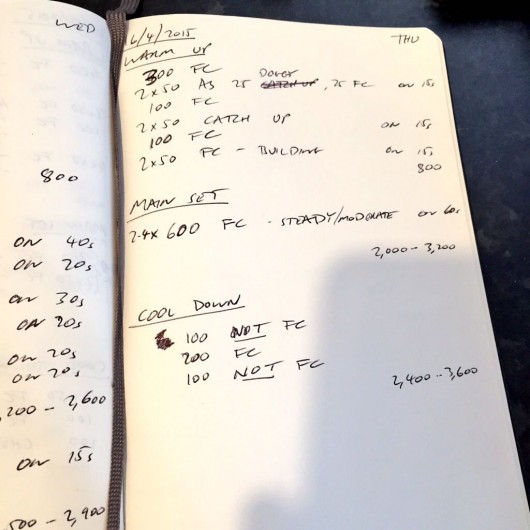 WED
800
ON 40s
ON 20s
ON 30s
ON 30s
ON 20s
ON 20s
,200 - 2,600
ON 15s
500 - 2,900
16/4/2015 THU
WARM UP
300 FC
2x50 AS 25 DOVER CATCH UP, 25 FC ON 15s
100 FC
2x50 CATCH UP ON 15s
100 FC
2x50 FC - BUILDING ON 15s
800
MAIN SET
2-4x 600 FC - STEADY/MODERATE ON 60s
2,000 - 3,200
COOL DOWN
100 NOT FC
200 FC
100 NOT FC
2,400 - 3,600